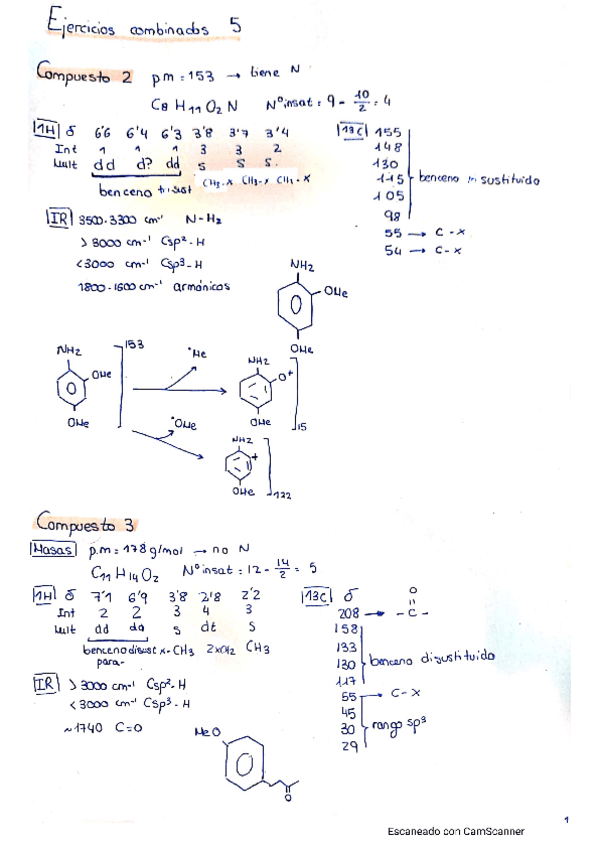 Ejercicios combinados 5
Compuesto 2 pm = 153 → tiene N
C8 H11 O2 N Nº insat = 9 - 10/2 = 4
1H δ 6'6 6'4 6'3 3'8 3'7 3'4
Int 1 1 1 3 3 2
Mult dd d? dd s s s.
benceno trisust CH3-X CH3-X CH1-X
13C 155
148
130
115 benceno tri sustituido
105
98
55 → C-X
54 → C-X
IR 3500-3300 cm-1 N-H2
> 3000 cm-1 Csp2-H
<3000 cm-1 Csp3-H
1800-1600 cm-1 armónicos
NH2
OMe
OMe
NH2
OMe
OMe
153
•Me
NH2
O+
OMe
15
•OMe
NH2
+
OMe
122
Compuesto 3
Masas p.m = 178 g/mol → no N
C11 H14 O2 Nº insat = 12 - 14/2 = 5
1H δ 7'1 6'9 3'8 2'8 2'2
Int 2 2 3 4 3
Mult dd dd s dt s
benceno disust x-CH3 2xCH2 CH3
para-
13C δ
208 → -C-
O
158
133
130 benceno disustituido
117
55 → C-X
45
30 rango sp3
29
IR > 3000 cm-1 Csp2-H
< 3000 cm-1 Csp3-H
~1740 C=O
MeO
O
1
Escaneado con CamScanner